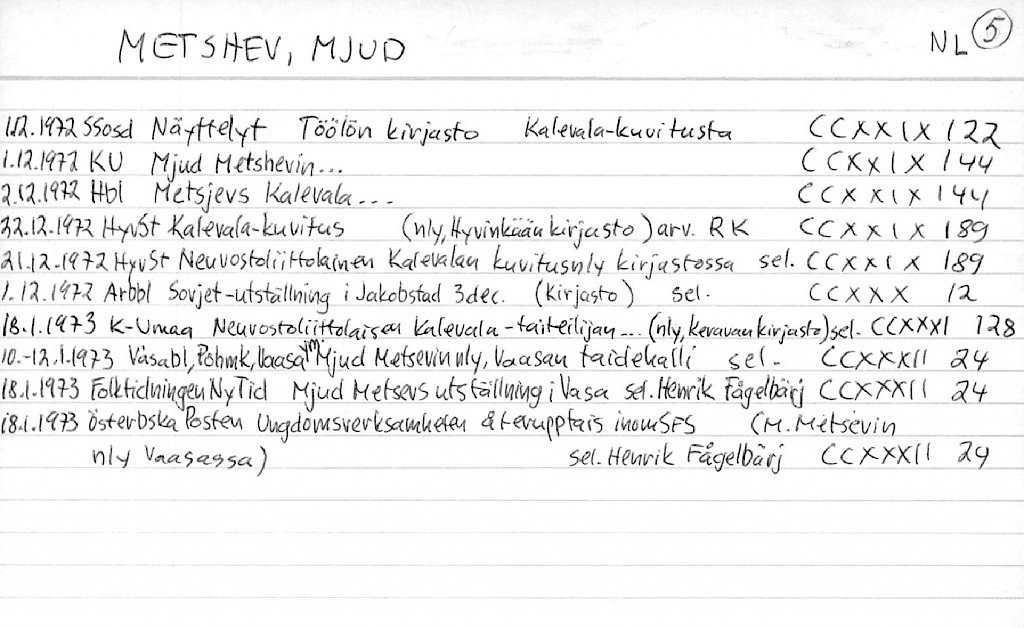 METSHEV, MJUD NL 5
1.12.1972 SSosd Näyttelyt Töölön kirjasto Kalevala-kuvitusta CCXXIX 122
1.12.1972 KU Mjud Metshevin... CCXXIX 144
2.12.1972 Hbl Metsjevs Kalevala... CCXXIX 144
22.12.1972 HyvSt Kalevala-kuvitus (nly, Hyvinkään kirjasto) arv. RK CCXXIX 189
21.12.1972 HyvSt Neuvostoliittolainen Kalevalan kuvitusnly kirjastossa sel. CCXXIX 189
1.12.1972 Arbbl Sovjet-utställning i Jakobstad 3 dec. (kirjasto) sel. CCXXX 12
18.1.1973 K-Umaa Neuvostoliittolaisen Kalevala-taiteilijan... (nly, keravan kirjasto) sel. CCXXXI 128
10.-12.1.1973 Vasabl, Pohmk, Vaasa ym Mjud Metsevin nly, Vaasan taidehalli sel. CCXXXII 24
18.1.1973 Folktidningen Ny Tid Mjud Metsevs utställning i Vasa sel. Henrik Fågelbärj CCXXXII 24
18.1.1973 Österbska Posten Ungdomsverksamheten återupptais inom SFS (M. Metsevin
nly Vaasassa) sel. Henrik Fågelbärj CCXXXII 29